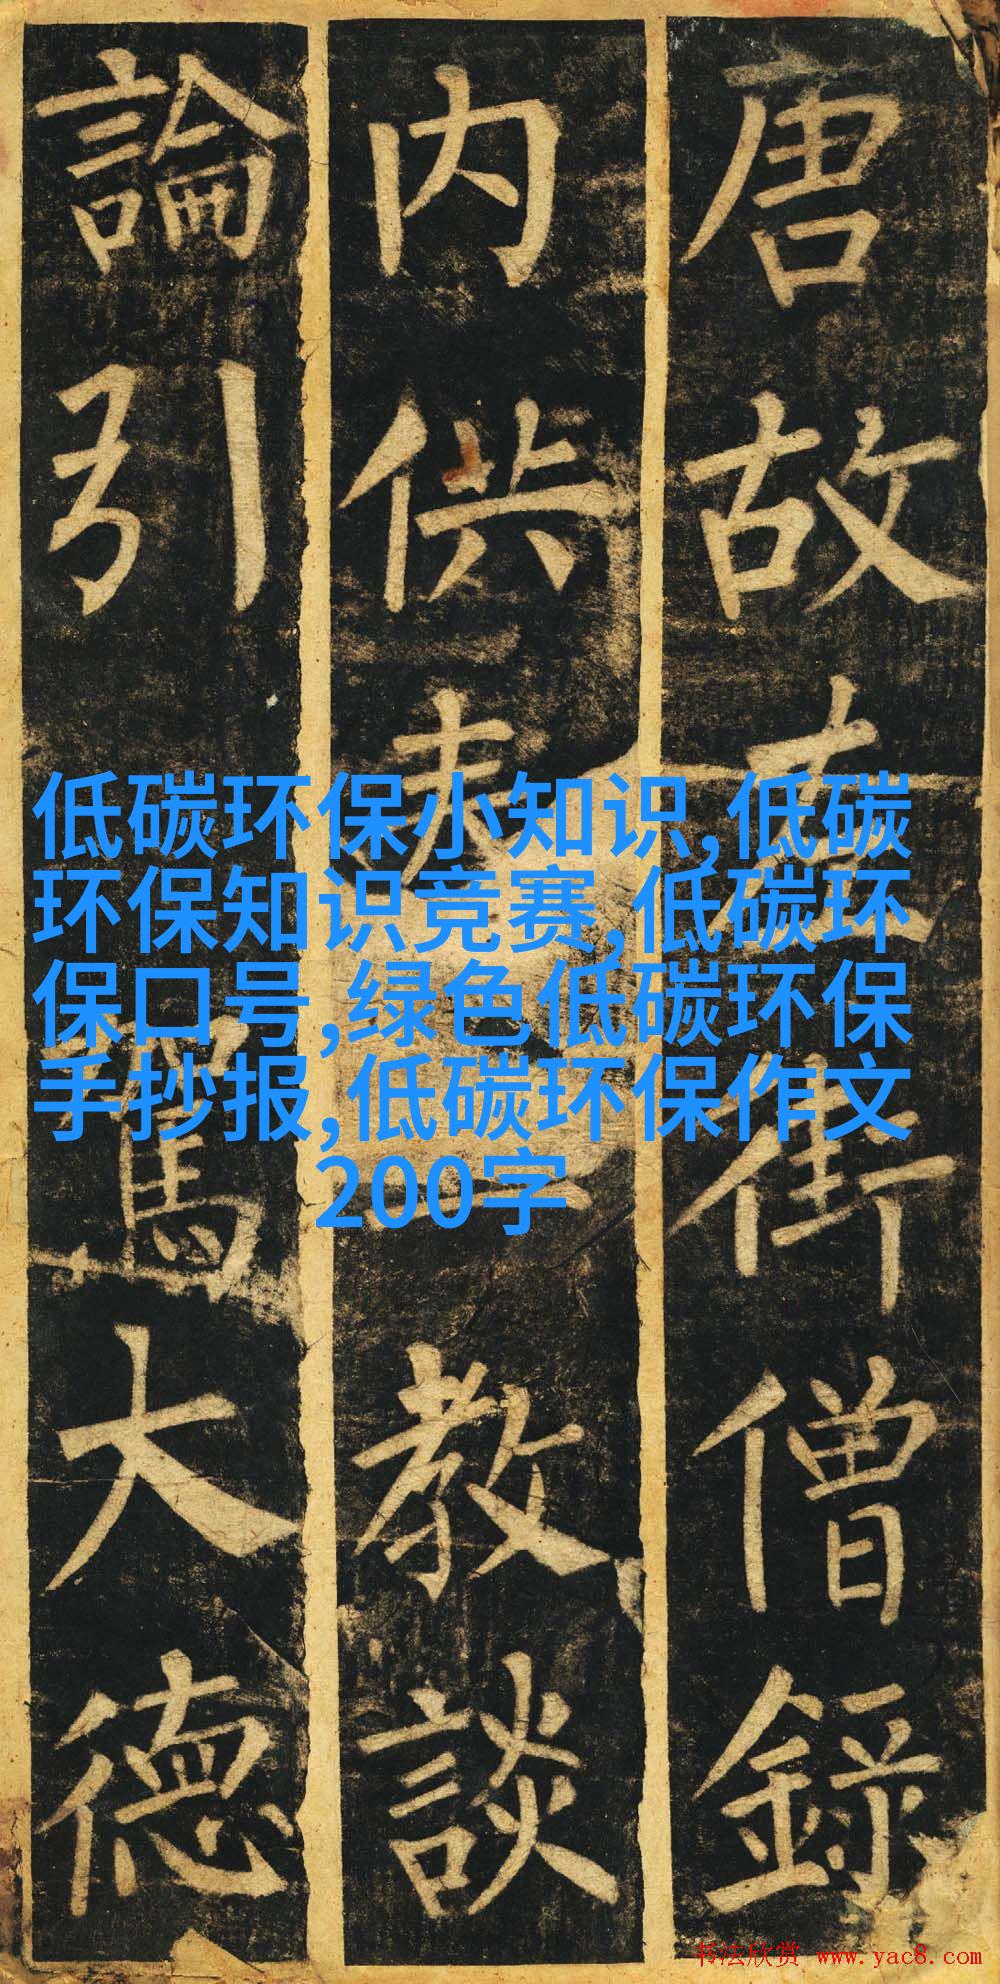 唐故左街僧錄
内供奉三教談
論引駕大德
低碳环保小知识,低碳
环保知识竞赛,低碳环
保口号,绿色低碳环保
手抄报,低碳环保作文
200字
书法欣赏 www.yac8.com